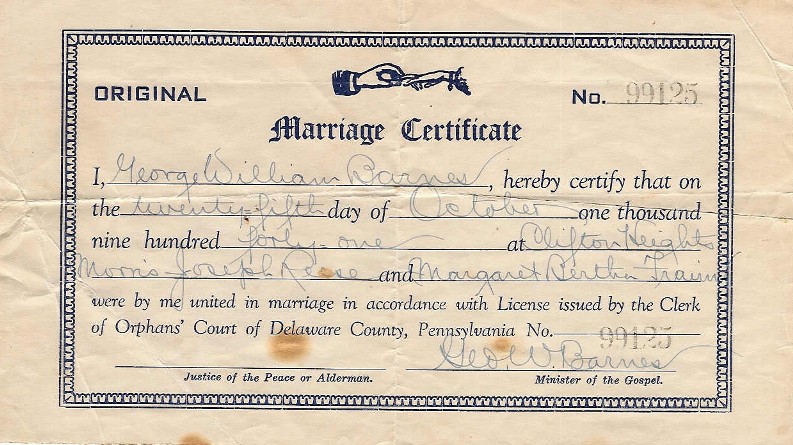 ORIGINAL No. 99125
Marriage Certificate
I, George William Barnes, hereby certify that on
the twenty-fifth day of October one thousand
nine hundred forty-one at Clifton Heights
Morris Joseph Reese and Margaret Bertha Train
were by me united in marriage in accordance with License issued by the Clerk
of Orphans' Court of Delaware County, Pennsylvania No. 99125
Geo. W. Barnes
Justice of the Peace or Alderman. Minister of the Gospel.